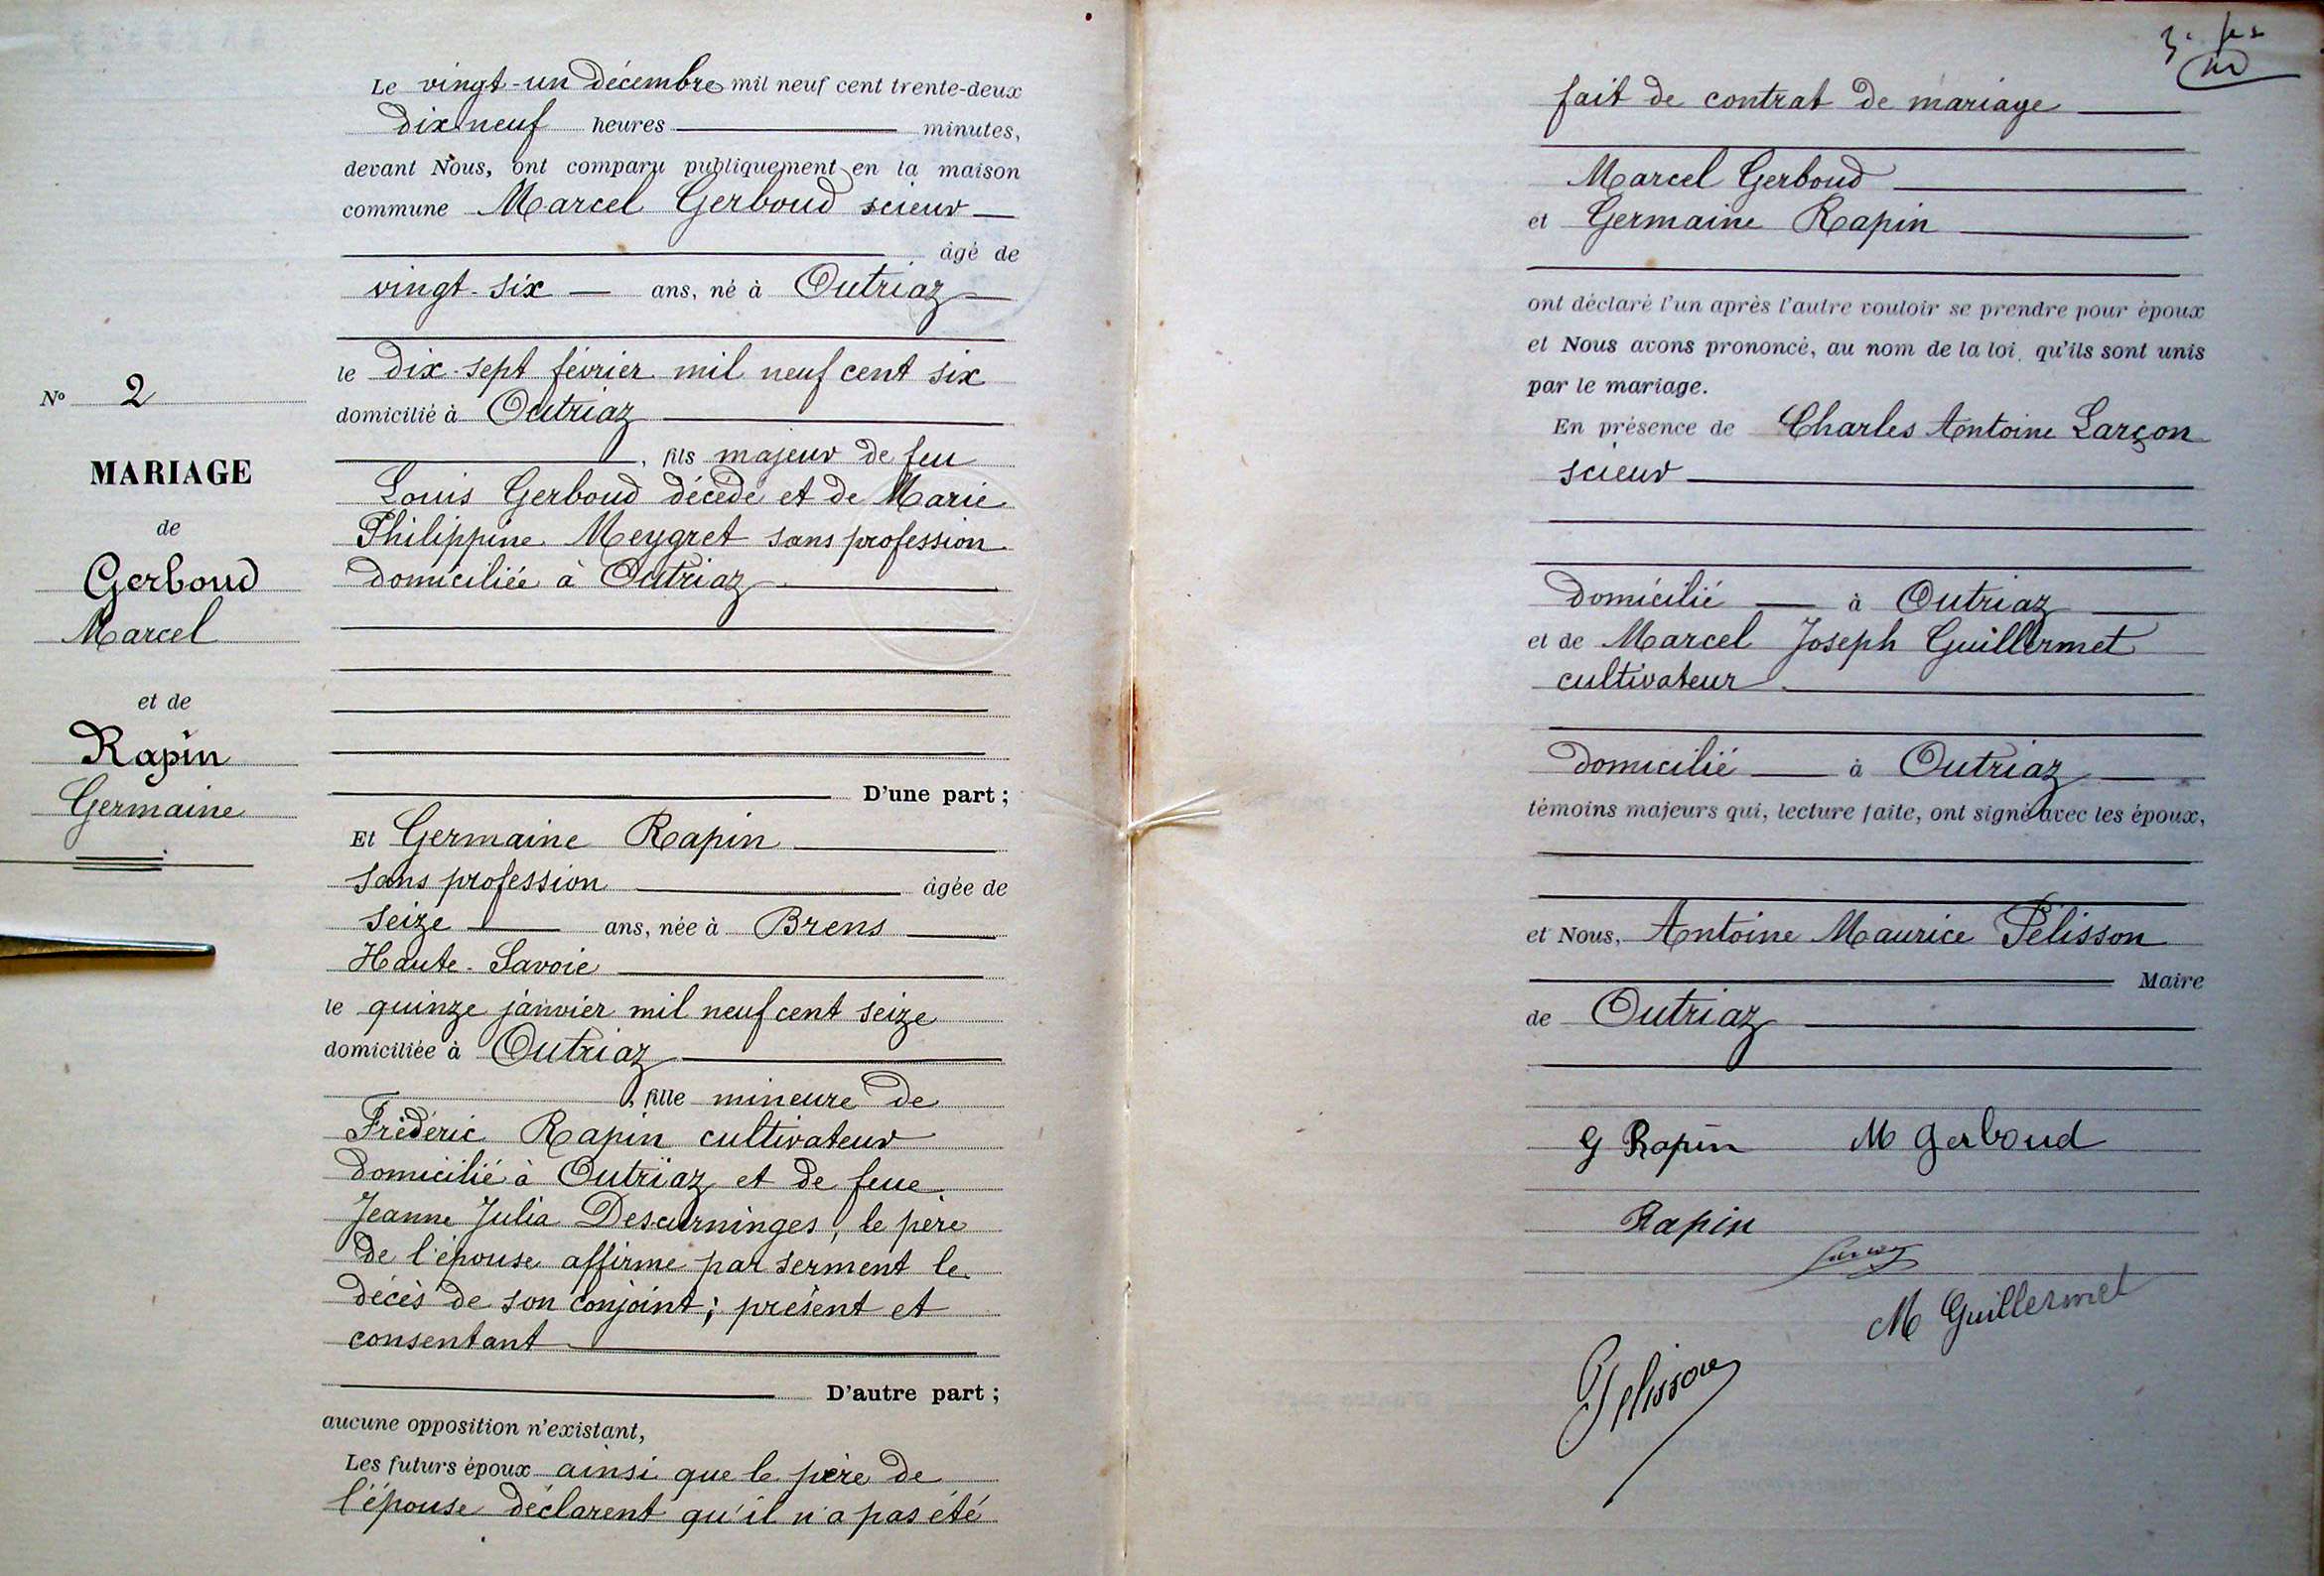 Le vingt-un décembre mil neuf cent trente-deux
dix neuf heures minutes,
devant Nous, ont comparu publiquement en la maison
commune Marcel Gerboud scieur
âgé de
vingt-six ans, né à Outriaz
le dix-sept février mil neuf cent six
domicilié à Outriaz
, fils majeur de feu
Louis Gerboud décédé et de Marie
Philippine Meygret sans profession
domiciliée à Outriaz
D'une part ;
Nº 2
MARIAGE
de
Gerboud
Marcel
et de
Rapin
Germaine
Et Germaine Rapin
sans profession âgée de
seize ans, née à Brens
Haute-Savoie
le quinze janvier mil neuf cent seize
domiciliée à Outriaz
, fille mineure de
Frédéric Rapin cultivateur
domicilié à Outriaz et de feue
Jeanne Julia Descurninges, le père
de l'épouse affirme par serment le
décès de son conjoint; présent et
consentant
D'autre part ;
aucune opposition n'existant,
Les futurs époux ainsi que le père de
l'épouse déclarent qu'il n'a pas été
fait de contrat de mariage
Marcel Gerboud
et Germaine Rapin
ont déclaré l'un après l'autre vouloir se prendre pour époux
et Nous avons prononcé, au nom de la loi, qu'ils sont unis
par le mariage.
En présence de Charles Antoine Larçon
scieur
domicilié à Outriaz
et de Marcel Joseph Guillermet
cultivateur
domicilié à Outriaz
témoins majeurs qui, lecture faite, ont signé avec les époux,
et Nous, Antoine Maurice Pélisson
Maire
de Outriaz
G Rapin M Gerboud
Rapin
M Guillermet
Pélisson